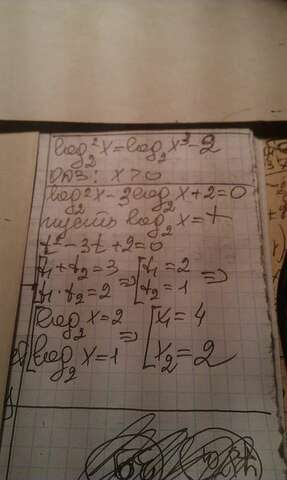 log₂²x=log₂x³-2
ОДЗ: x>0
log₂²x-3log₂x+2=0
пусть log₂x=t
t²-3t+2=0
[t₁+t₂=3 [t₁=2
[t₁·t₂=2 => [t₂=1 =>
[log₂x=2 [x₁=4
[log₂x=1 => [x₂=2